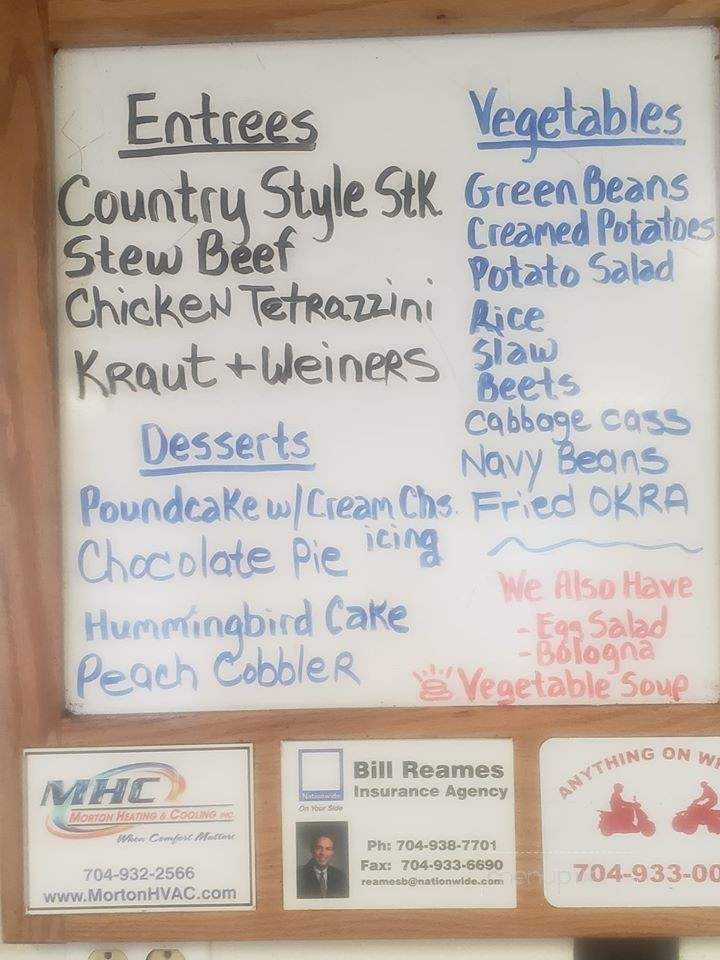 Entrees
Country Style Stk
Stew Beef
Chicken Tetrazzini
Kraut + Weiners
Desserts
Poundcake w/ Cream Chs.
icing
Chocolate Pie
Hummingbird Cake
Peach Cobbler
Vegetables
Green Beans
Creamed Potatoes
Potato Salad
Rice
Slaw
Beets
Cabbage cass
Navy Beans
Fried OKRA
We Also Have
- Egg Salad
- Bologna
Vegetable Soup
MHC
MORTON HEATING & COOLING INC.
When Comfort Matters
704-932-2566
www.MortonHVAC.com
Nationwide
On Your Side
Bill Reames
Insurance Agency
Ph: 704-938-7701
Fax: 704-933-6690
reamesb@nationwide.com
ANYTHING ON
704-933-00